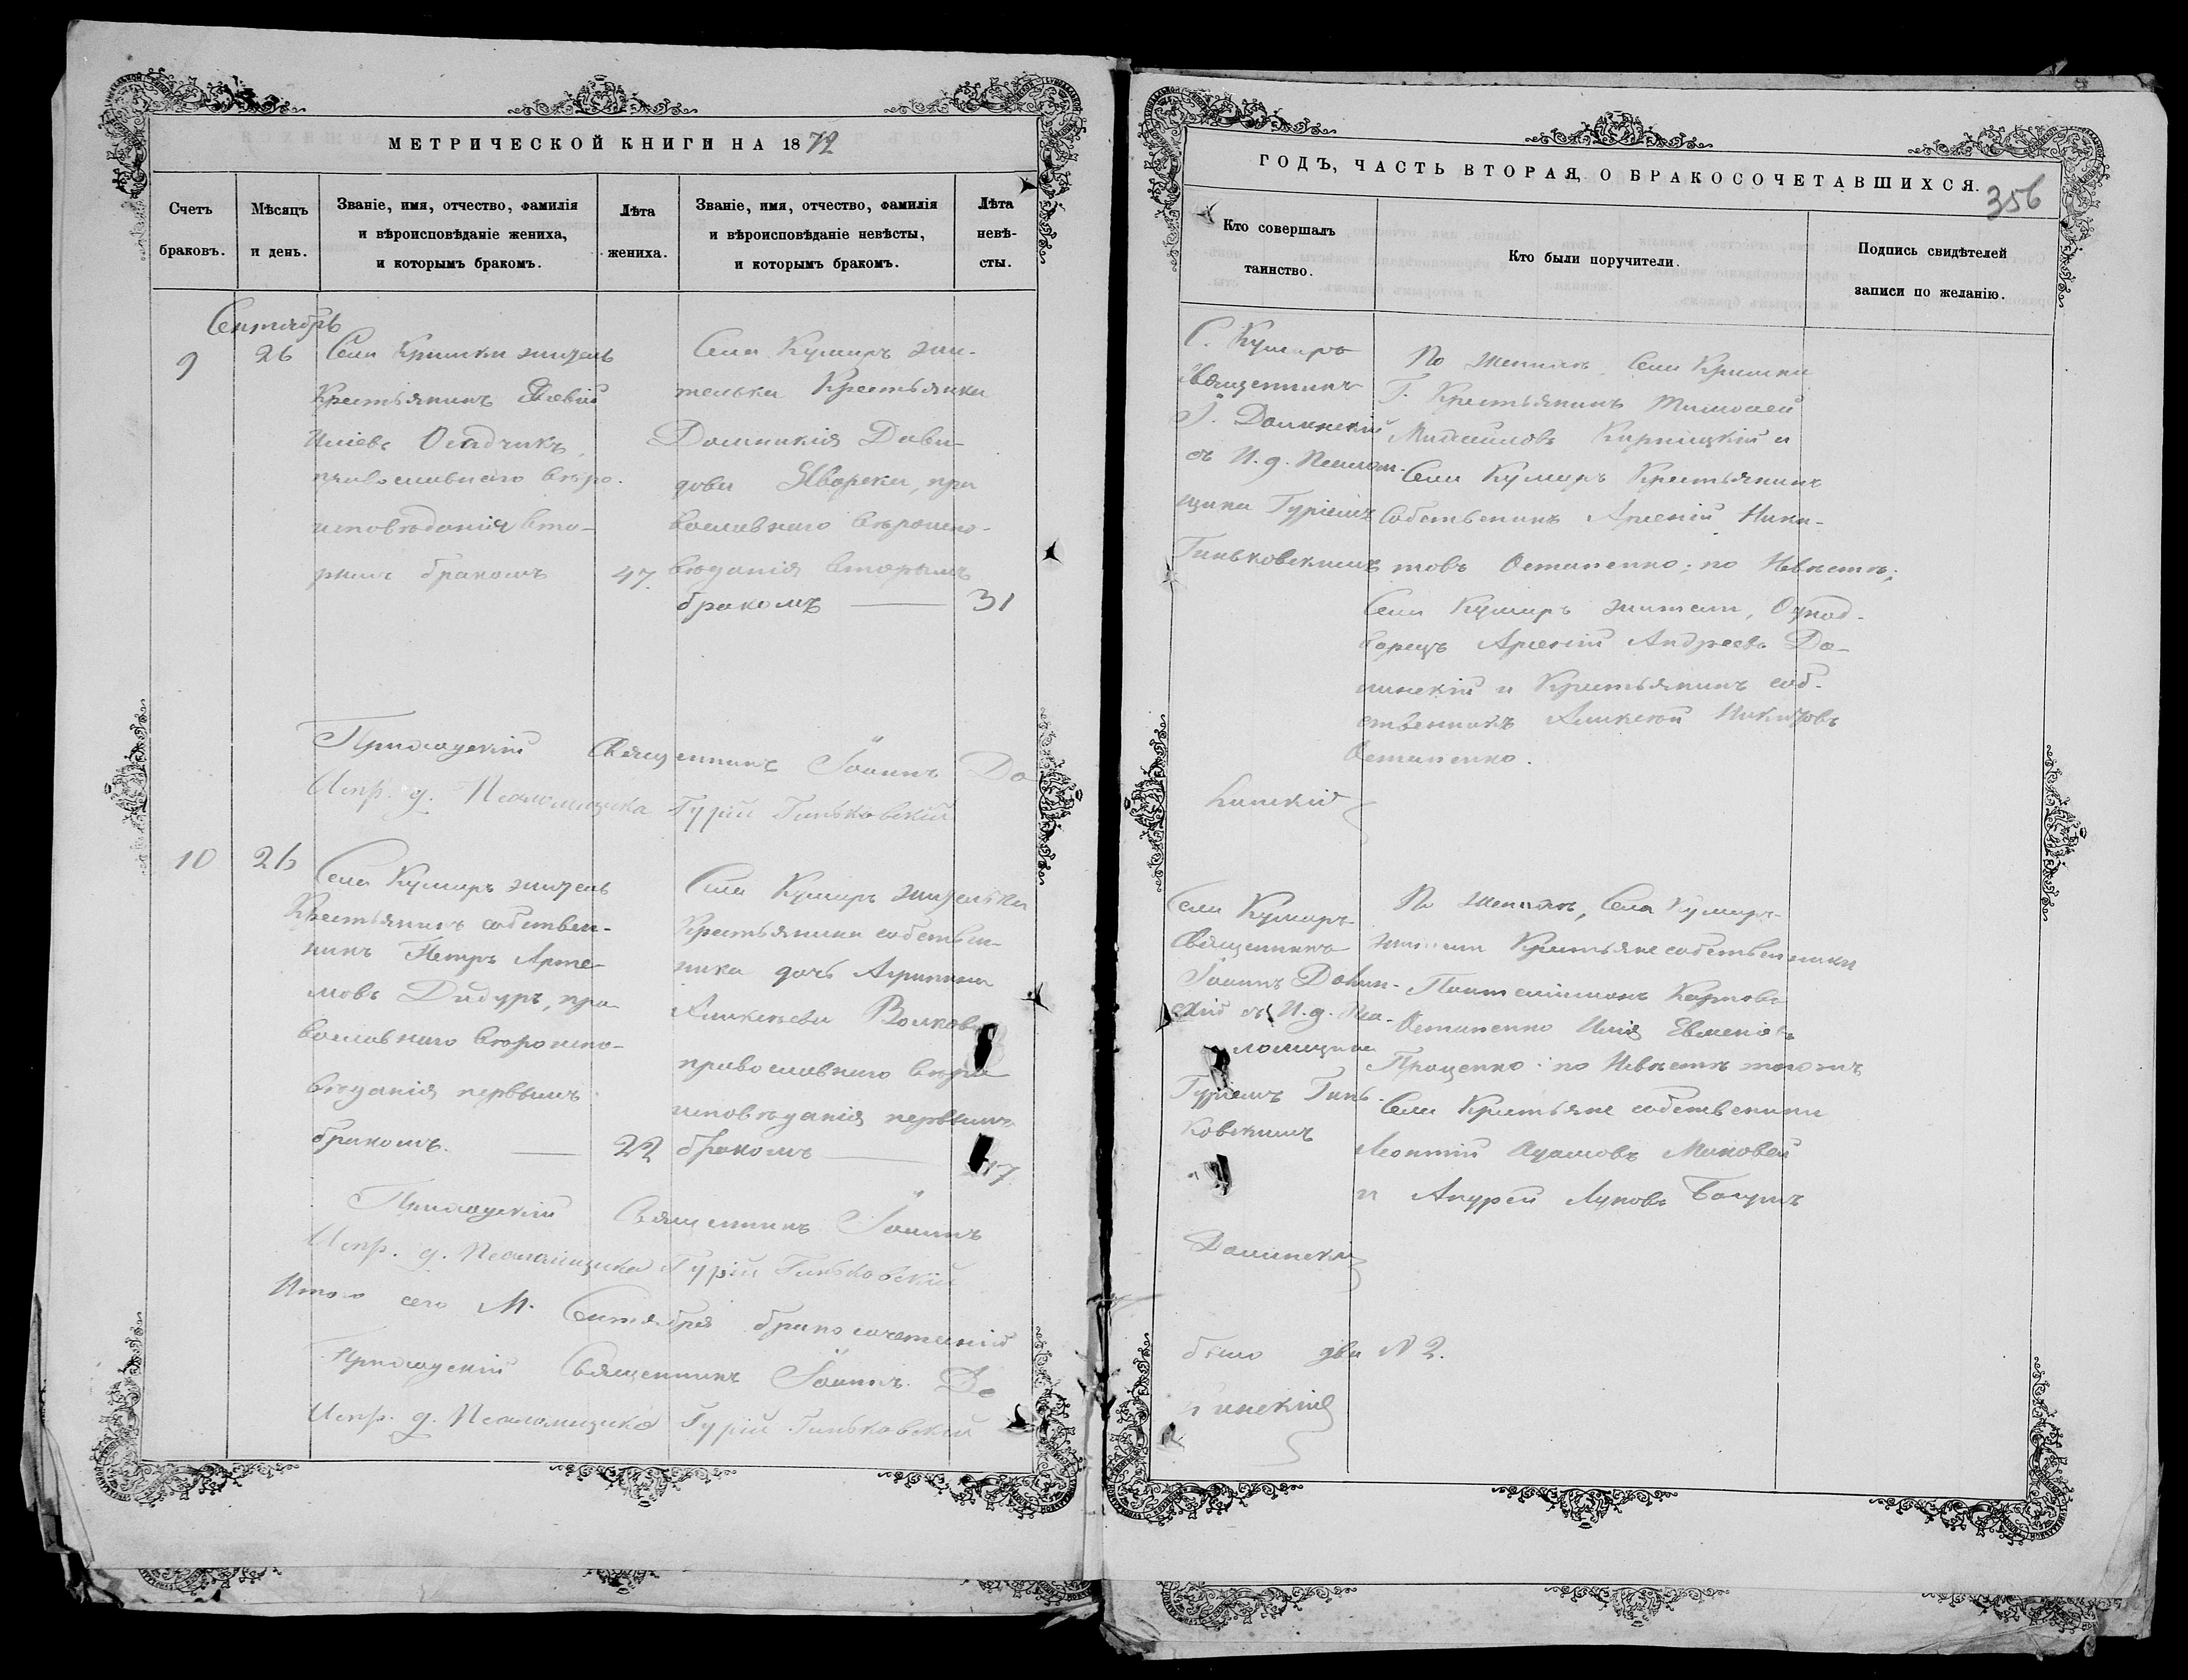 МЕТРИЧЕСКОЙ КНИГИ НА 1872
Счетъ браковъ.
Мѣсяцъ и день.
Званіе, имя, отчество, фамилія
и вѣроисповѣданіе жениха,
и которымъ бракомъ.
Лѣта жениха.
Званіе, имя, отчество, фамилія
и вѣроисповѣданіе невѣсты,
и которымъ бракомъ.
Лѣта невѣ-
сты.
Сентябрь
9
26
Села Кришки житель
Крестьянинъ
Иліевъ Осадчикъ,
православнаго вѣро-
исповѣданія вто-
рымъ бракомъ
47.
Села Кумаръ жи-
телька Крестьянка
Домникія Дави-
дова Яворска, пра
вославнаго вѣроиспо-
вѣданія вторымъ
бракомъ —
31
Приходскій Священникъ Іоаннъ До
Испр. д. Псаломщика Гурій Гиньковскій
10
26
Села Кумаръ житель
Крестьянинъ собствен-
никъ Петръ Арте-
мовъ Дидуръ, пра-
вославнаго вѣроиспо-
вѣданія первымъ
бракомъ. —
22
Села Кумаръ жителька
Крестьянина собствен-
ника дочь Агрипина
Алексѣева Волкова
православнаго вѣро
исповѣданія первымъ
бракомъ —
17
Приходскій Священникъ Іоаннъ
Испр. д. Псаломщика Гурій Гиньковскій
Итого сего М. Сентября бракосочетаній
Приходскій Священникъ Іоаннъ До
Испр. д. Псаломщика Гурій Гиньковскій
ГОДЪ, ЧАСТЬ ВТОРАЯ, О БРАКОСОЧЕТАВШИХСЯ.
356
Кто совершалъ
таинство.
Кто были поручители.
Подпись свидѣтелей
записи по желанію.
С. Кумаръ
Священникъ
І. Долинскій
съ И. д. Псалом-
щика Гуріемъ
Гиньковскимъ
По женихѣ Села Кришки
Г. Крестьянинъ Тимофей
Михайловъ и
Села Кумаръ Крестьянинъ
Собственникъ Арсеній Ники-
товъ Остапенко; по Невѣстѣ;
Села Кумаръ жители, Однод-
ворецъ Арсеній Андреевъ До-
линскій и Крестьянинъ соб-
ственникъ Алексѣй Никитовъ
Остапенко.
линскій
Села Кумаръ
Священникъ
Іоаннъ Долин-
скій съ И. д. Пса-
ломщика
Гуріемъ Гинь-
ковскимъ
По женихѣ, Села Кумаръ
жители Крестьяне собственники
Пантелимонъ Карповъ
Остапенко Илія Евменіовъ
Проценко: по Невѣстѣ тогожъ
Села Крестьяне собственники
Леонтій Адамовъ Маковей
и Андрей Луковъ
Долинскій
было два № 2.
линскій